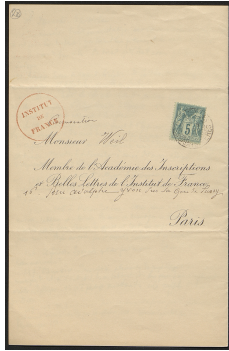 INSTITUT
DE
FRANCE
5
Monsieur Weil
Membre de l'Académie des Inscriptions
et Belles Lettres de l'Institut de France
16 rue adolphe Yvon
Paris